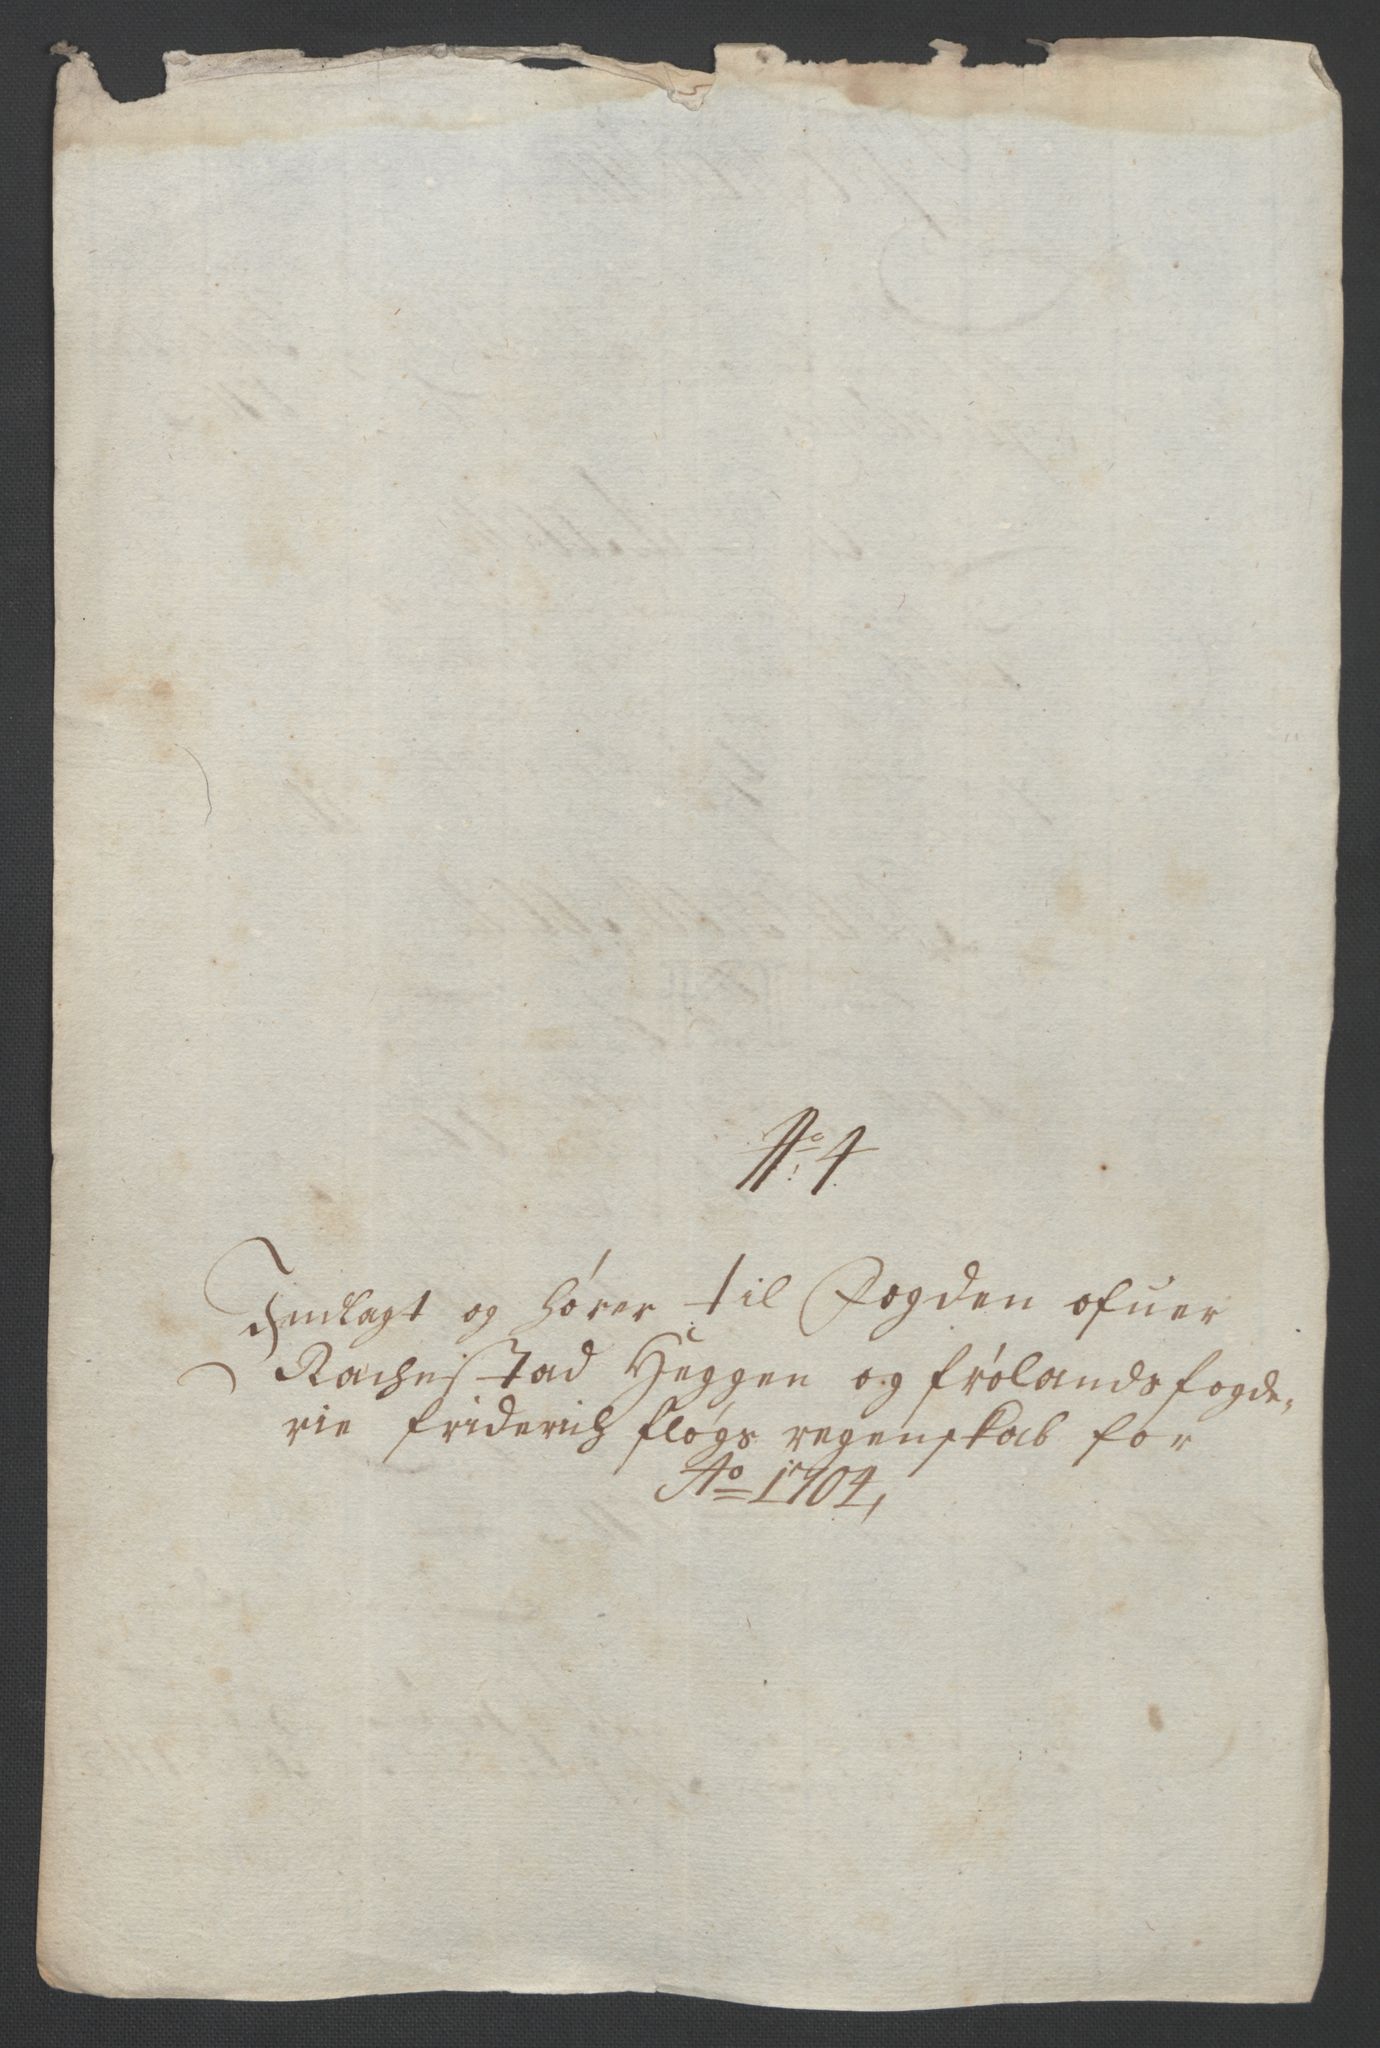 No 4
Indlagt og hører til Fogden ofuer
Rachestad Heggen og frølands fogde-
rie friderich fløgs regenskab for
Ao 1704,